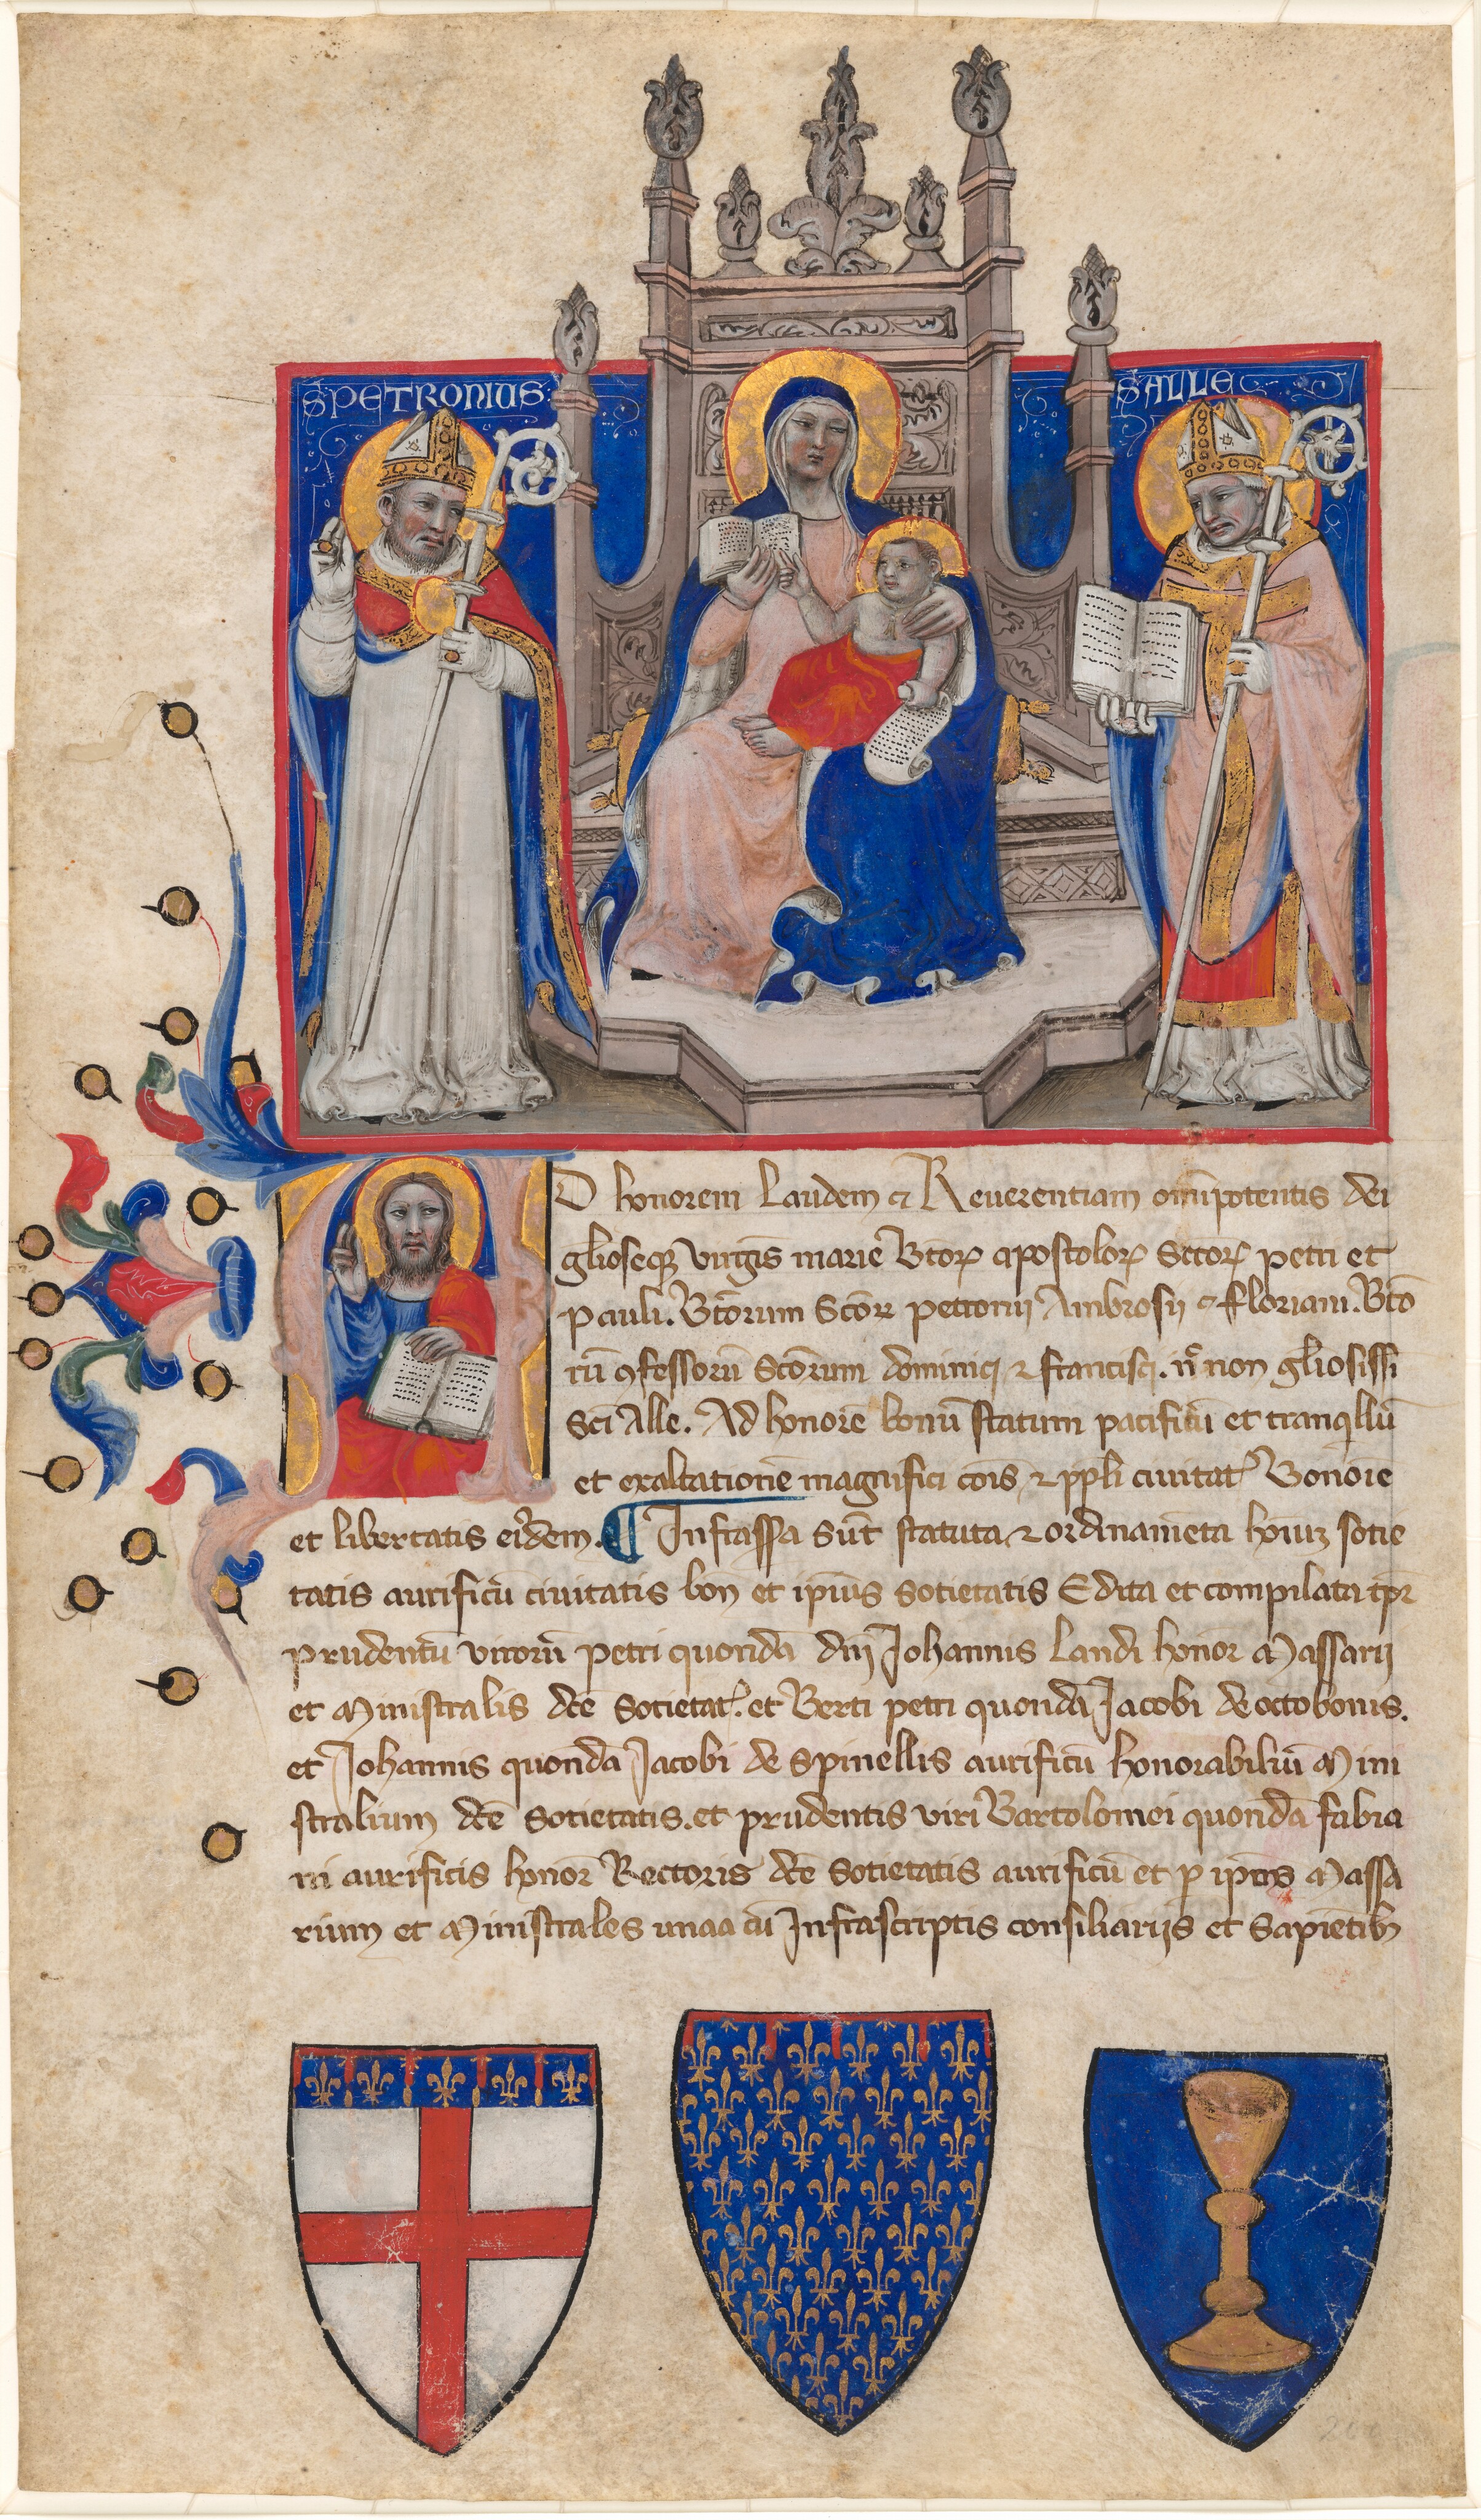 S PETRONIUS
S ALLE
D honorem Laudem et Reuerentiam omīpotentis dei
gl̄ioseqȝ virgīs marie Btōꝝ apostoloꝝ Sctōꝝ petri et
pauli. Btōrum Scōꝝ petronij Ambrosij et floriani. Btō
rū ꝯfessorū Scōrum dominici ⁊ francisci. non gl̄iosissi
Sci Alle. Ad honorē bonū statum pacificū et tranqllū
et exaltationē magnifici cōis ⁊ ppli ciuitat Bonōie
et libertatis eidem. ¶ Infrassa sūt statuta ⁊ ordinamēta hōiuȝ sotie
tatis aurificū ciuitatis bon̄ et ipius Sotietatis Edita et compilata tpr̄
prudentū virorū petri quondā dnj Johannis Landi honor̄ Massarij
et Ministralis dcē Sotietat. et Berti petri quondā Jacobi de octobonis.
et Johannis quondā Jacobi de Spinellis aurificū honorabiliū Mini
stralium dcē Sotietatis. et prudentis viri Bartolomei quondā fabia
ni aurificis honor̄ Rectoris dcē Sotietatis aurificū et ꝑ ipōs Massa
rium et Ministrales unaa cū Infrascriptis consiliarijs et Sapiētib